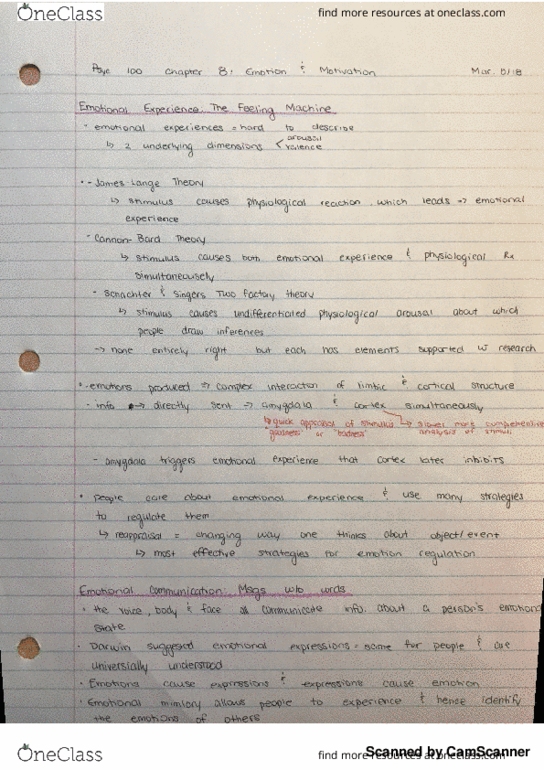 OneClass
find more resources at oneclass.com
Psyc 100 Chapter 8: Emotion & Motivation Mar. 01/18
Emotional Experience: The Feeling Machine
emotional experiences = hard to describe
↳ 2 underlying dimensions < arousal
valence
- James-Lange Theory
↳ stimulus causes physiological reaction which leads => emotional
experience
- Cannon-Bard Theory
↳ stimulus causes both emotional experience & physiological Rx
simultaneously
- Schachter & Singers Two factory theory
↳ stimulus causes undifferentiated physiological arousal about which
people draw inferences
-> none entirely right but each has elements supported w research
- emotions produced => complex interaction of limbic & cortical structure
- info directly sent => amygdala & cortex simultaneously
↳ quick appraisal of stimulus
"goodness" or "badness"
↳ slower more comprehensive
analysis of stimuli
- amygdala triggers emotional experience that cortex later inhibits
• people care about emotional experience & use many strategies
to regulate them
↳ reappraisal = changing way one thinks about object/event
↳ most effective strategies for emotion regulation
Emotional Communication: Msgs w/o words
• the voice, body & face all communicate info. about a person's emotional
state
• Darwin suggested emotional expressions = same for people & are
universially understood
• Emotions cause expressions & expressions cause emotion
• Emotional mimicry allows people to experience & hence identify
the emotions of others
OneClass
find more resources at oneclass.com
Scanned by CamScanner